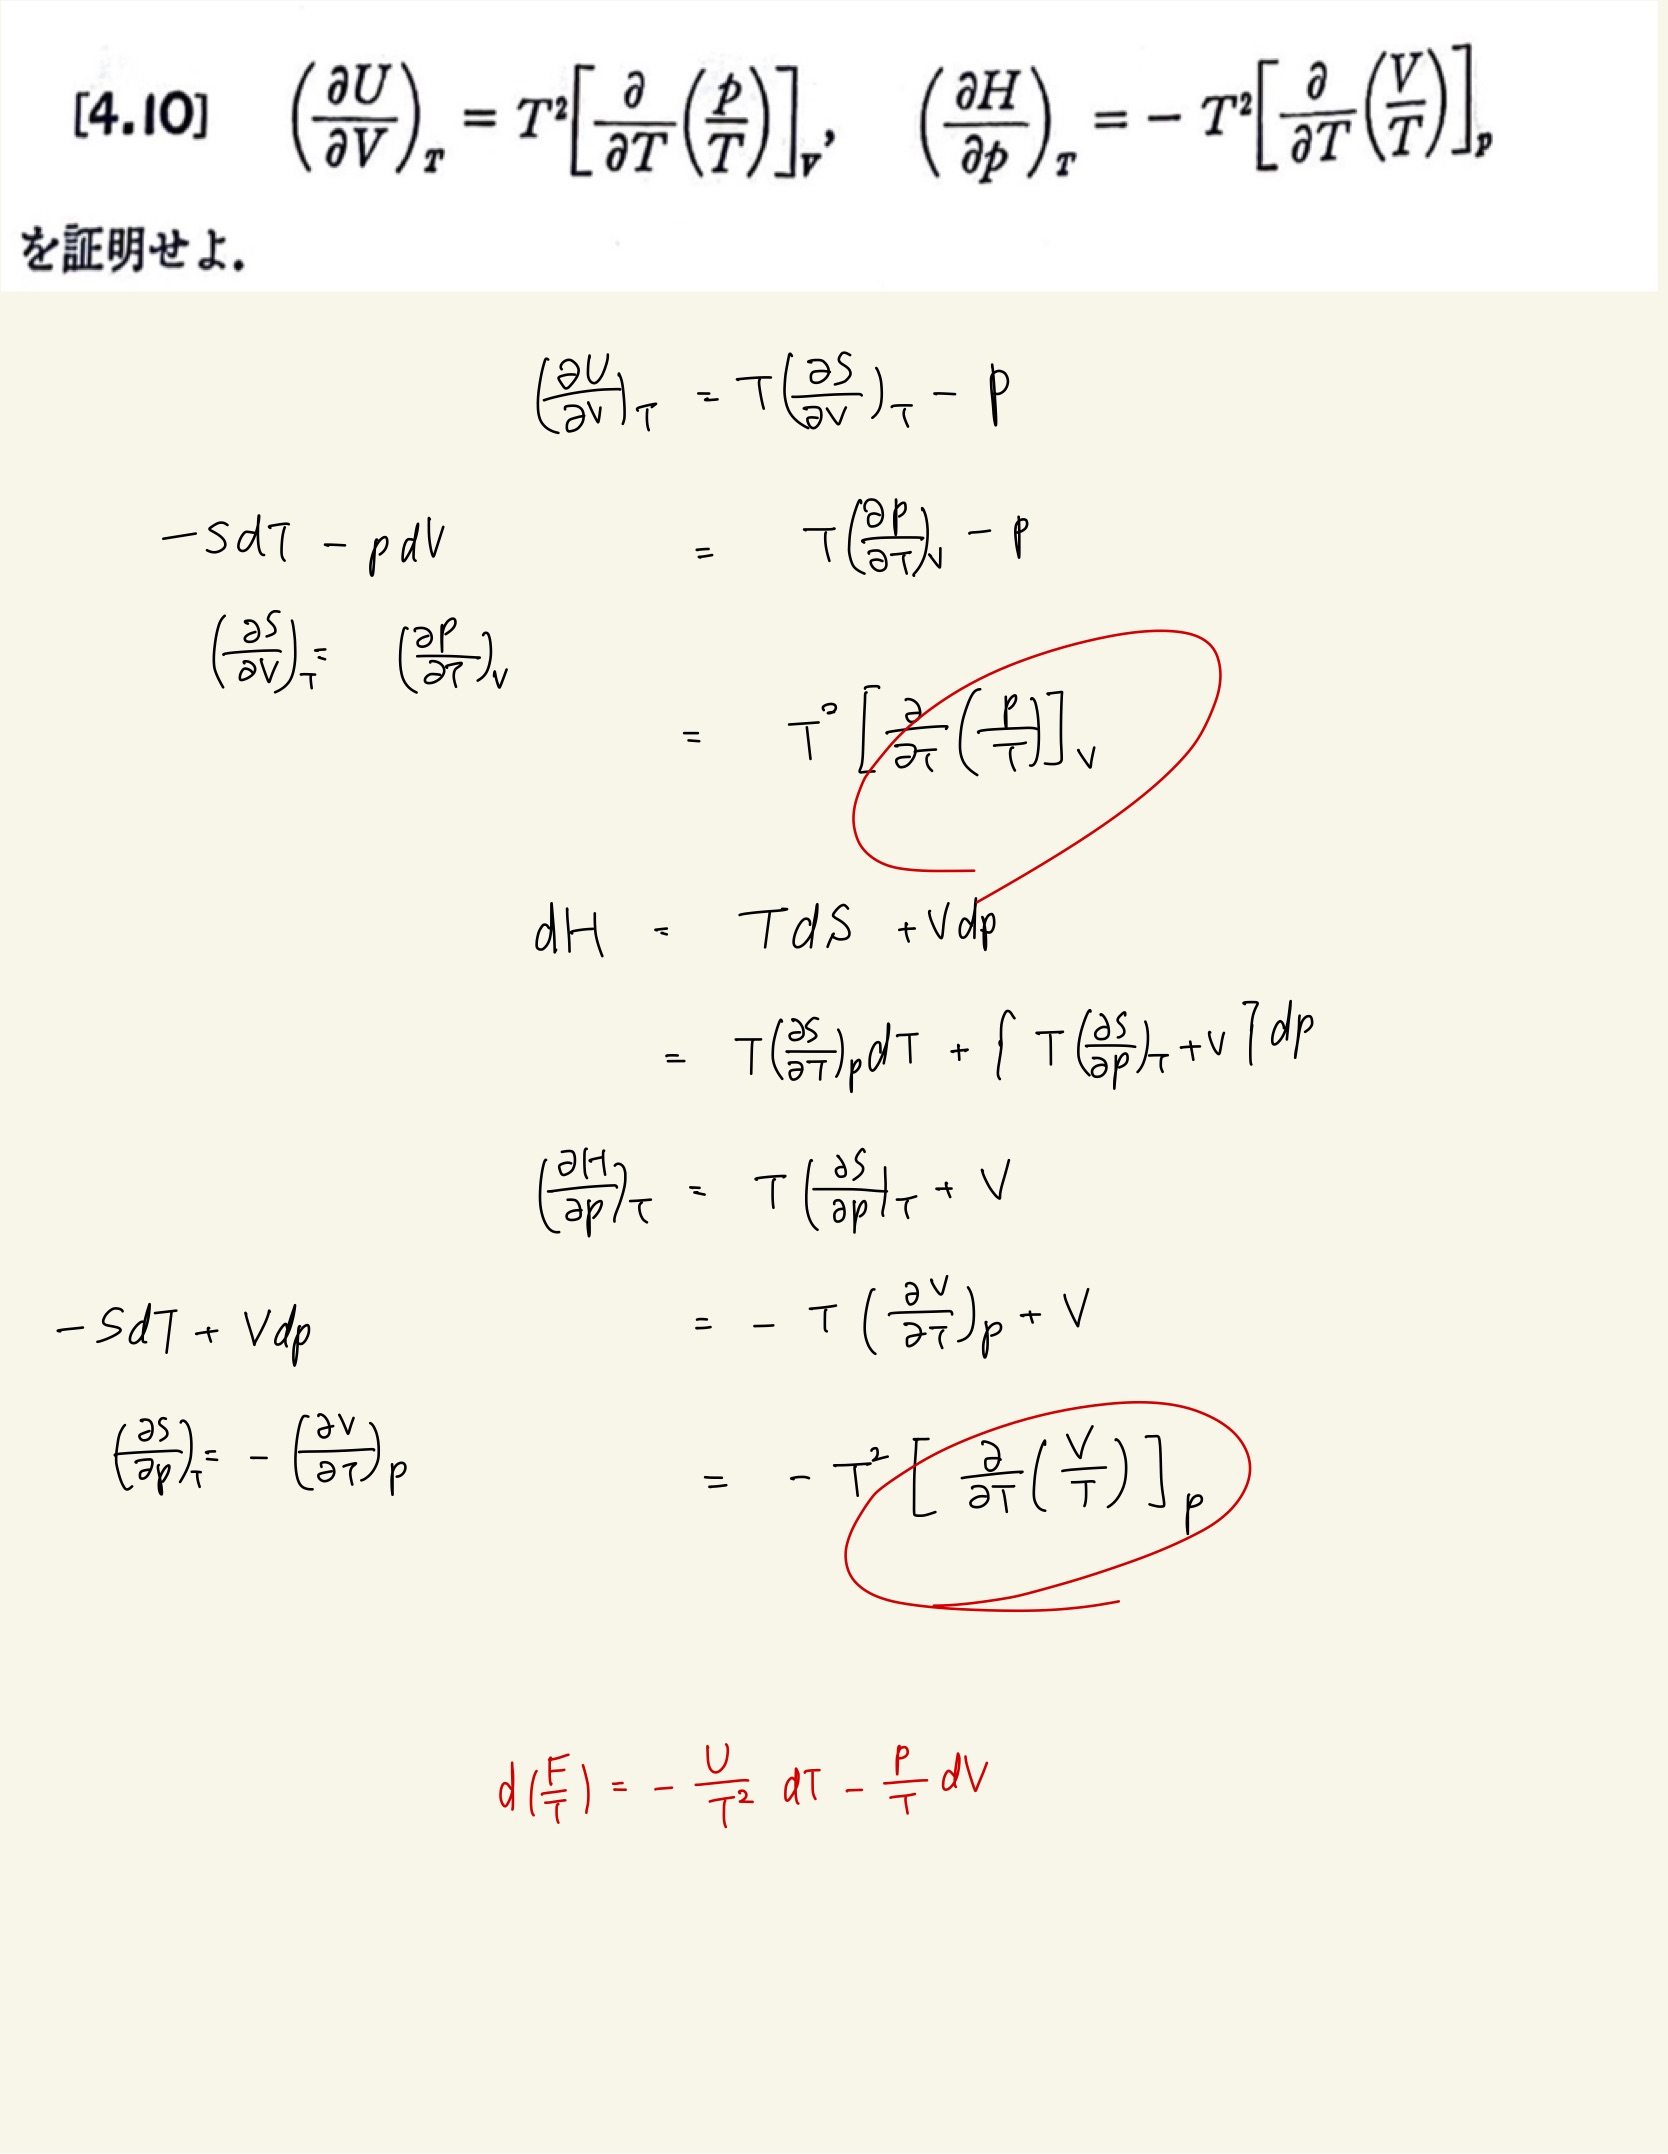 [4.10] (∂U/∂V)_T = T²[∂/∂T(p/T)]_V, (∂H/∂p)_T = − T²[∂/∂T(V/T)]_p
を証明せよ.
(∂U/∂V)_T = T(∂S/∂V)_T − p
−SdT − pdV
= T(∂p/∂T)_V − p
(∂S/∂V)_T = (∂p/∂T)_V
= T²[∂/∂T(p/T)]_V
dH = TdS + Vdp
= T(∂S/∂T)_p dT + [T(∂S/∂p)_T + V]dp
(∂H/∂p)_T = T(∂S/∂p)_T + V
−SdT + Vdp
= − T(∂V/∂T)_p + V
(∂S/∂p)_T = − (∂V/∂T)_p
= − T²[∂/∂T(V/T)]_p
d(F/T) = − U/T² dT − p/T dV